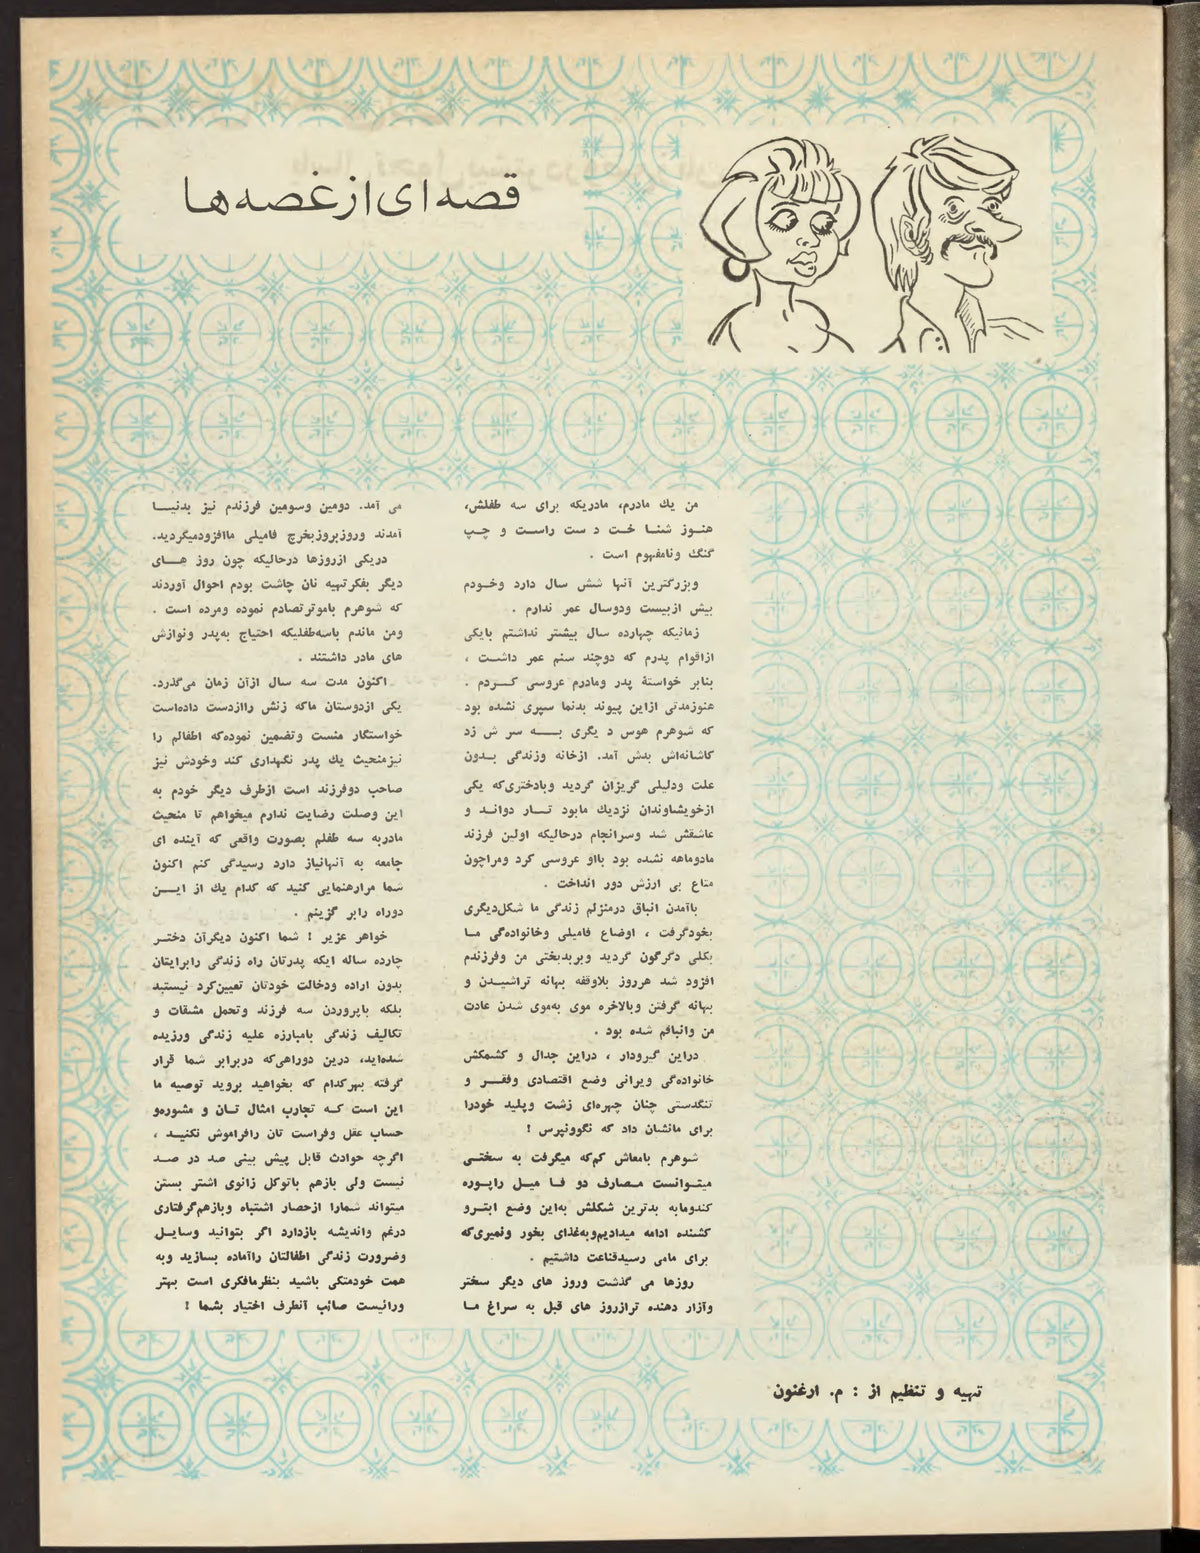 قصه ای از غصه ها
من یك مادرم، مادریکه برای سه طفلش،
هنوز شناخت دست راست و چپ
گنگ ونامفهوم است .
وبزرگترین آنها شش سال دارد وخودم
بیش ازبیست ودوسال عمر ندارم .
زمانیکه چهارده سال بیشتر نداشتم بایکی
ازاقوام پدرم که دوچند سنم عمر داشت ،
بنابر خواستهٔ پدر ومادرم عروسی کردم .
هنوزمدتی ازاین پیوند بدنما سپری نشده بود
که شوهرم هوس دیگری به سرش زد
کاشانه‌اش بدش آمد. ازخانه وزندگی بدون
علت ودلیلی گریزان گردید وبادختری‌که یکی
ازخویشاوندان نزدیك مابود تار دواند و
عاشقش شد وسرانجام درحالیکه اولین فرزند
مادوماهه نشده بود بااو عروسی کرد ومراچون
متاع بی ارزش دور انداخت .
باآمدن انباق درمنزلم زندگی ما شکل‌دیگری
بخودگرفت ، اوضاع فامیلی وخانواده‌گی ما
بکلی دگرگون گردید وبربدبختی من وفرزندم
افزود شد هرروز بلاوقفه بهانه تراشیدن و
بهانه گرفتن وبالاخره موی به‌موی شدن عادت
من وانباقم شده بود .
دراین گیرودار ، دراین جدال و کشمکش
خانواده‌گی ویرانی وضع اقتصادی وفقر و
تنگدستی چنان چهره‌ای زشت وپلید خودرا
برای مانشان داد که نگوونپرس !
شوهرم بامعاش کم‌که میگرفت به سختی
میتوانست مصارف دو فامیل راپوره
کندومابه بدترین شکلش به‌این وضع ابترو
کشنده ادامه میدادیم‌وبه‌غذای بخور ونمیری‌که
برای مامی رسیدقناعت داشتیم .
روزها می گذشت وروز های دیگر سختر
وآزار دهنده ترازروز های قبل به سراغ ما
می آمد. دومین وسومین فرزندم نیز بدنیا
آمدند وروزبروزبخرچ فامیلی ماافزودمیگردید.
دریکی ازروزها درحالیکه چون روز های
دیگر بفکرتهیه نان چاشت بودم احوال آوردند
که شوهرم باموترتصادم نموده ومرده است .
ومن ماندم باسه‌طفلیکه احتیاج به‌پدر ونوازش
های مادر داشتند .
اکنون مدت سه سال ازآن زمان می‌گذرد.
یکی ازدوستان ماکه زنش راازدست داده‌است
خواستگار منست وتضمین نموده‌که اطفالم را
نیزمنحیث یك پدر نگهداری کند وخودش نیز
صاحب دوفرزند است ازطرف دیگر خودم به
این وصلت رضایت ندارم میخواهم تا منحیث
مادربه سه طفلم بصورت واقعی که آینده ای
جامعه به آنهانیاز دارد رسیدگی کنم اکنون
شما مراراهنمایی کنید که کدام یك از این
دوراه رابر گزینم .
خواهر عزیر ! شما اکنون دیگرآن دختر
چارده ساله ایکه پدرتان راه زندگی رابرایتان
بدون اراده ودخالت خودتان تعیین‌کرد نیستید
بلکه باپروردن سه فرزند وتحمل مشقات و
تکالیف زندگی بامبارزه علیه زندگی ورزیده
شده‌اید، درین دوراهی‌که دربرابر شما قرار
گرفته بهرکدام که بخواهید بروید توصیه ما
این است که تجارب امثال تان و مشوره‌و
حساب عقل وفراست تان رافراموش نکنید ،
اگرچه حوادث قابل پیش بینی صد در صد
نیست ولی بازهم باتوکل زانوی اشتر بستن
میتواند شمارا ازحصار اشتباه وبازهم‌گرفتاری
درغم واندیشه بازدارد اگر بتوانید وسایل
وضرورت زندگی اطفالتان راآماده بسازید وبه
همت خودمتکی باشید بنظرمافکری است بهتر
ورائیست صائب آنطرف اختیار بشما !
تهیه و تنظیم از : م. ارغنون